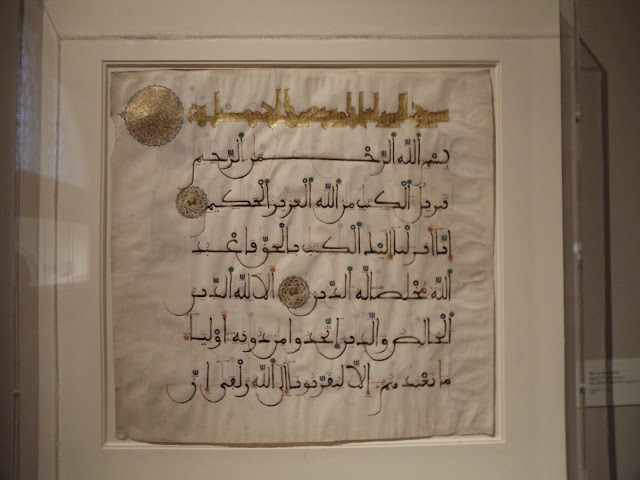 سورة الزمر
بِسْمِ اللَّهِ الرَّحْمَنِ الرَّحِيمِ
تَنْزِيلُ الْكِتَبِ مِنَ اللَّهِ الْعَزِيزِ الْحَكِيمِ
إِنَّا أَنْزَلْنَا إِلَيْكَ الْكِتَبَ بِالْحَقِّ فَاعْبُدِ
اللَّهَ مُخْلِصًا لَّهُ الدِّينَ أَلَا لِلَّهِ الدِّينُ
الْخَالِصُ وَالَّذِينَ اتَّخَذُوا مِنْ دُونِهِ أَوْلِيَاءَ
مَا نَعْبُدُهُمْ إِلَّا لِيُقَرِّبُونَا إِلَى اللَّهِ زُلْفَى إِنَّ